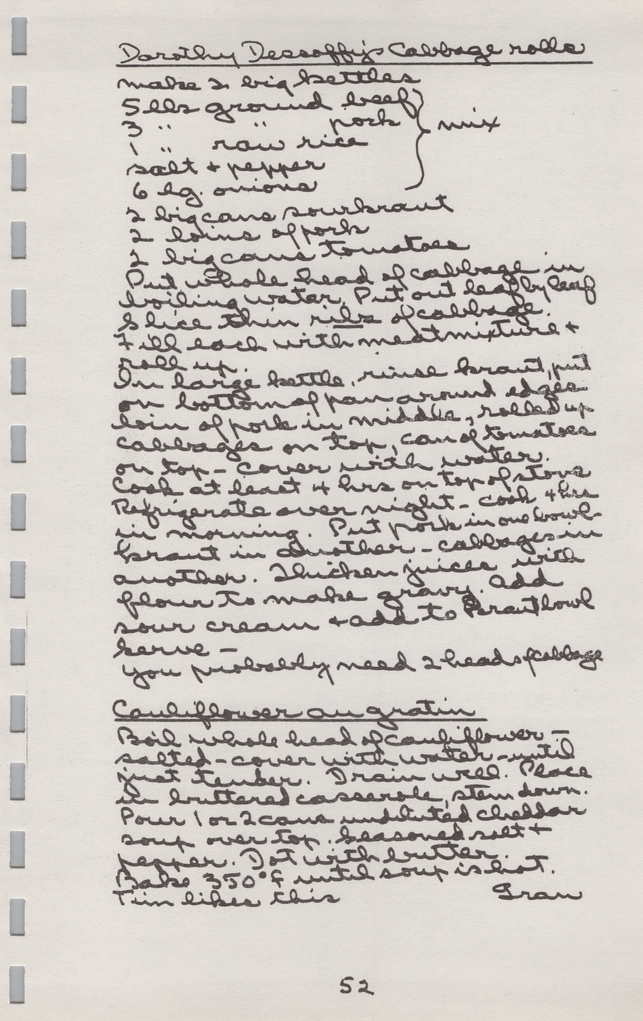 Dorothy Dessoffy's Cabbage rolls
make 2 big kettles
5 lbs ground beef
3 " " pork } mix
1 " raw rice
salt + pepper
6 lg. onions
2 big cans sourkraut
2 loins of pork
2 big cans tomatoes
Put whole head of cabbage in
boiling water. Put out leaf by leaf
Slice thin ribs of cabbage.
Fill each with meat mixture +
roll up.
In large kettle, rinse kraut, put
on bottom of pan around edges
loin of pork in middle, rolled up
cabbages on top, can of tomatoes
on top - cover with water.
Cook at least 4 hrs on top of stove
Refrigerate over night - cook 4 hrs
in morning. Put pork in one bowl -
kraut in another - cabbages in
another. Thicken juices with
flour to make gravy. add
sour cream + add to kraut bowl
serve -
you probably need 2 heads of cabbage
Cauliflower au gratin
Boil whole head of cauliflower -
salted - cover with water - until
just tender. Drain well. Place
in buttered casserole, stem down.
Pour 1 or 2 cans undiluted cheddar
soup over top. Seasoned salt +
pepper. Dot with butter.
Bake 350°F until soup is hot.
Tim likes this Gran
52